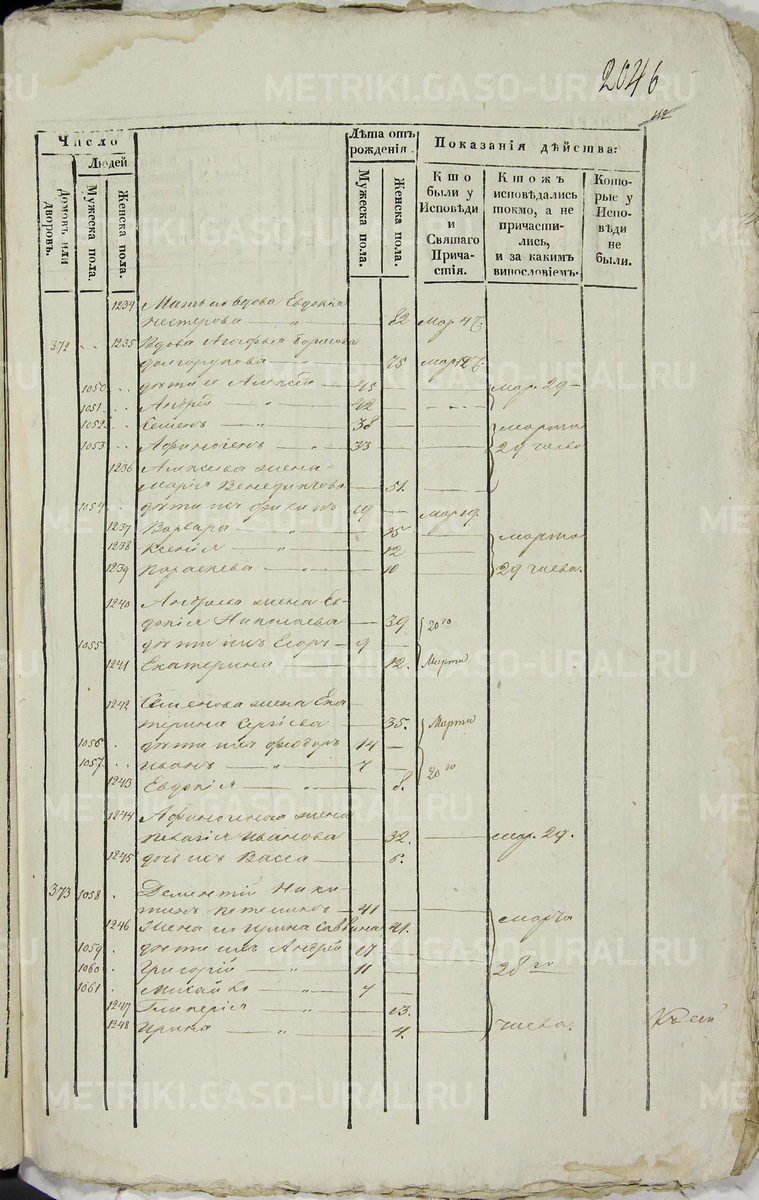 2046
Число
Людей
Домовъ или дворовъ.
Мужеска пола.
Женска пола.
Лѣта отъ рожденія.
Мужеска пола.
Женска пола.
Показанія дѣйства:
Кто были у Исповѣди и Святаго Причастія.
Ктожъ исповѣдались токмо, а не причастились, и за какимъ винословіемъ.
Которые у Исповѣди не были.
1234 Мать его вдова Евдокія
Нестерова — „ — 82 Мар.
372 1235 Вдова Агафья Борисова
Долгорукова — „ — 75
1050 дѣти ее Алексѣй — 45 Мар. 29
1051 Андрей „ — 42
1052 Семенъ — „ — 38 марта
1053 Афиногенъ — „ — 33 29 числа
1236 Алексѣева жена
Марія Венедиктова — 51.
1054 дѣти ихъ — 19
1237 Варвара — „ — 15 марта
1238 Ксенія — „ — 12
1239 Параскева — „ — 10 29 числа.
1240 Андреева жена Ев-
докія Николаева — 39 20го
1055 дѣти ихъ Егоръ — 9
1241 Екатерина — 12. Марта
1242 Семенова жена Ека-
терина Сергіева — 35. Марта
1056 дѣти ихъ Феодоръ 14
1057 Иванъ — „ — 7
1243 Евдокія — „ — 8. 20го
1244 Афиногенова жена
Пелагія Иванова — 32. мар. 29.
1245 дочь ихъ Васса — 6.
373 1058 Дементій Ники-
тинъ — 41
1246 Жена его Ирина Саввина 41. марта
1059 дѣти ихъ Андрей 17
1060 Григорій — „ — 11 28го
1061 Михайло — „ — 7
1247 Гликерія — „ — 13.
1248 Ирина — „ — 4. числа.
METRIKI.GASO-URAL.RU